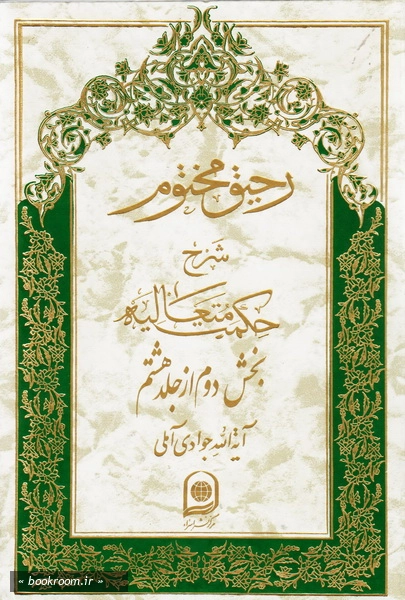 رحیق مختوم
شرح
حکمت متعالیه
بخش دوم از جلد هشتم
آیة الله جوادی آملی
مرکز نشر اسراء
« bookroom.ir »